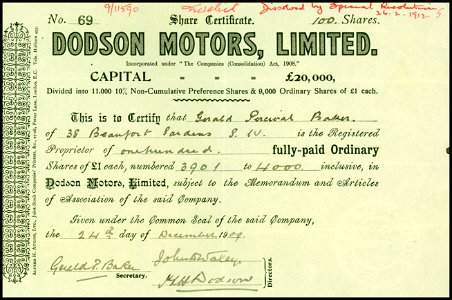 9/11590
Dissolved by Special Resolution
26.2.1912
No. 69 Share Certificate. 100 Shares.
DODSON MOTORS, LIMITED.
Incorporated under "The Companies (Consolidation) Act, 1908."
CAPITAL — £20,000,
Divided into 11.000 10% Non-Cumulative Preference Shares & 9,000 Ordinary Shares of £1 each.
This is to Certify that Gerald Percival Baker
of 38 Beaufort Gardens S.W. is the Registered
Proprietor of one hundred fully-paid Ordinary
Shares of £1 each, numbered 3901 to 4000 inclusive, in
Dodson Motors, Limited, subject to the Memorandum and Articles
of Association of the said Company.
Given under the Common Seal of the said Company,
the 24th day of December 1909.
Gerald P. Baker
Secretary.
Directors.